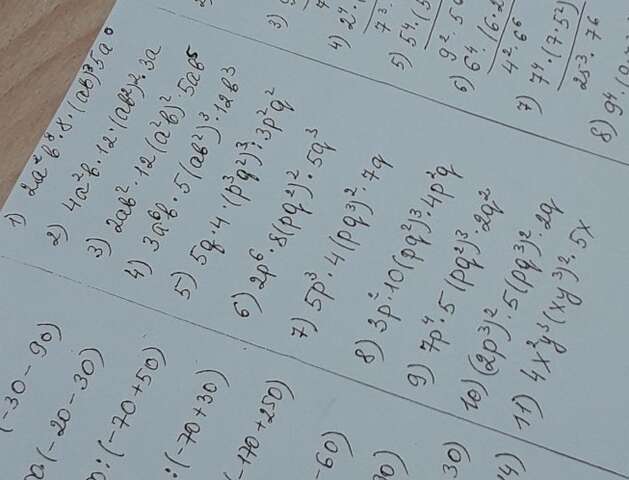 1) 2a²b⁸·8·(ab)³5a⁰
2) 4a²b·12·(ab²)²·3a
3) 2ab²·12(a²b)²·5ab⁵
4) 3a⁶b·5(ab²)³·12b³
5) 5q·4·(p³q²)³:3p²q²
6) 2p⁶·8(pq²)²·5q³
7) 5p³·4(pq³)²·7q
8) 3p²·10(pq²)³·4p²q
9) 7p⁴·5(pq²)³·2q²
10) (2p³)²·5(pq³)²·2q
11) 4x²y³(xy³)²·5x
3)
4) 2⁴
7³
5) 5⁴·(5
9²·5
6) 6⁴·(6·2
4²·6⁶
7) 7⁴·(7·5²)
25⁻³·7⁶
8) 9⁴·(9
(-30-90)
(-20-30)
:(-70+50)
:(-70+30)
(-170+250)
-60)
30)
14)